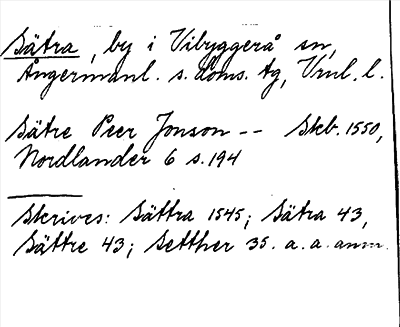 Sätra, by i Vibyggerå sn,
Ångermanl. s. doms. tg, Vnl. l.
Sätre Peer Jonson -- Skb. 1550,
Nordlander 6 s. 194
Skrives: Sättra 1545; Sätra 43,
Sättre 43; Setther 35. a. a. anm.